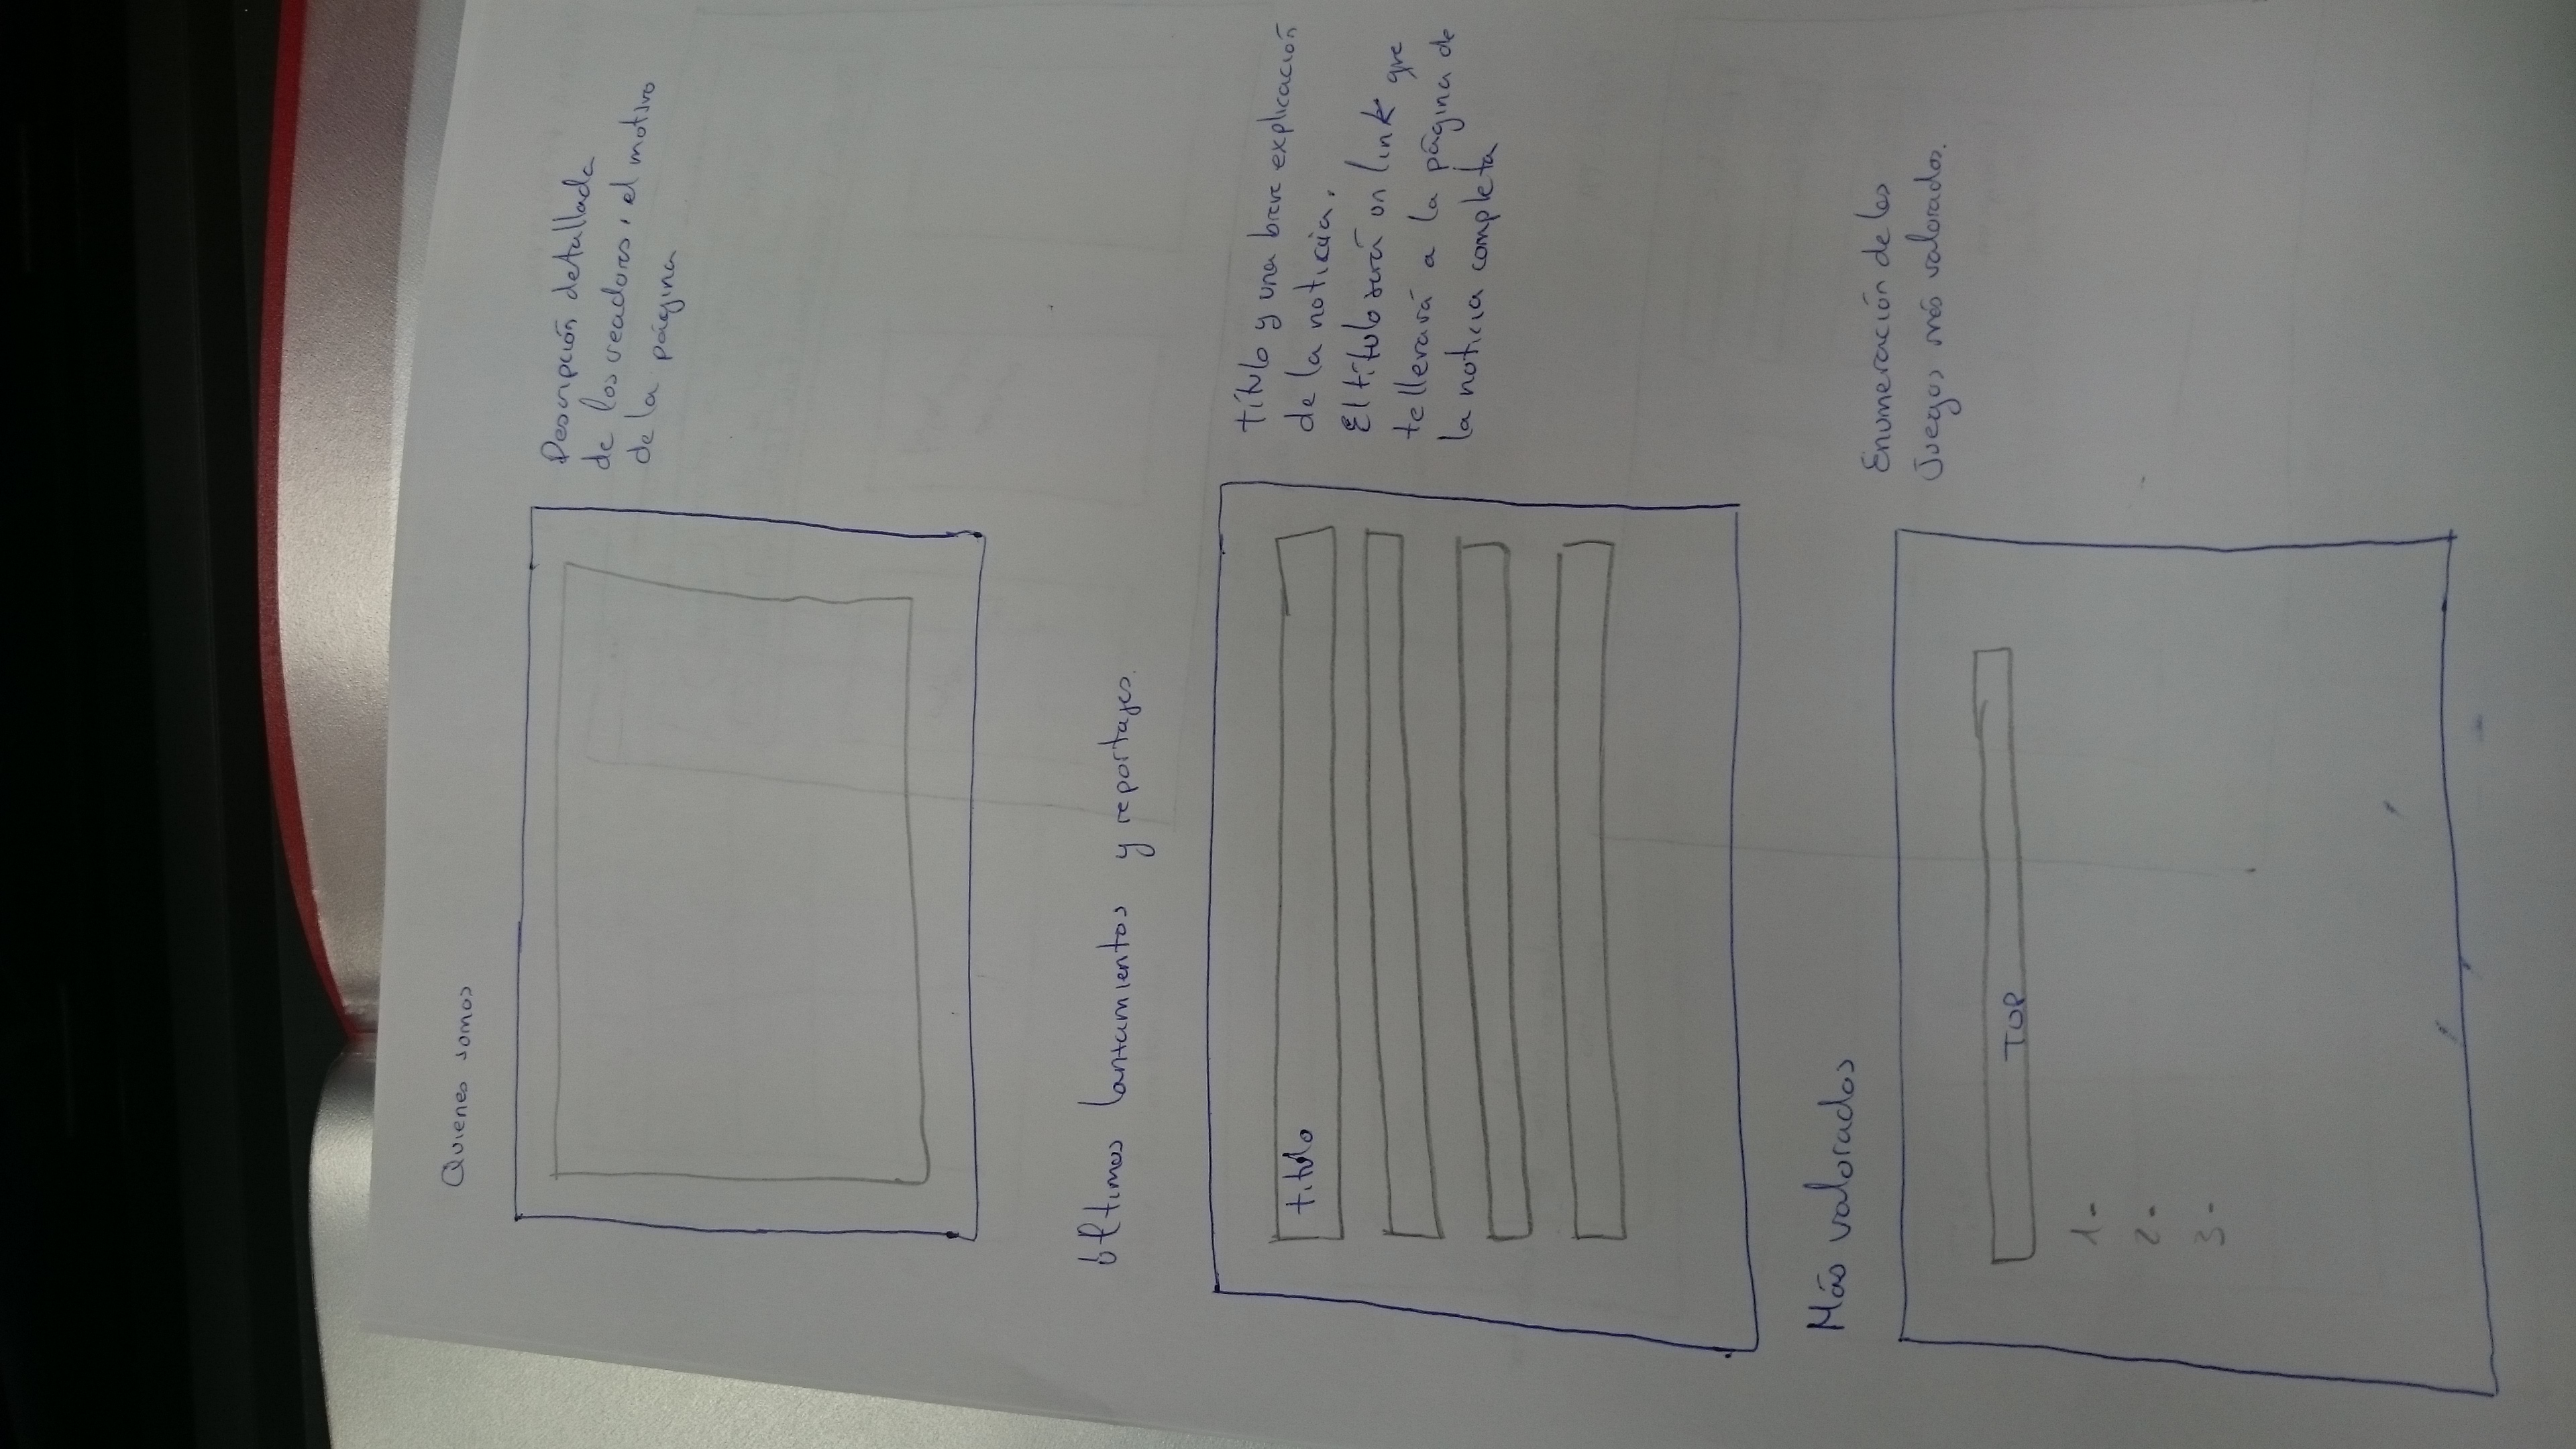 Quienes somos
Descripción detallada
de los creadores, el motivo
de la página
Últimos lanzamientos y reportajes.
título
título y una breve explicación
de la noticia.
El título será un link que
te llevará a la página de
la noticia completa
Más valorados
Enumeración de los
Juegos más valorados.
TOP
1-
2-
3-